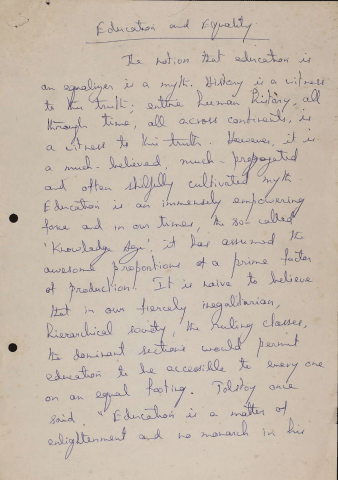 Education and Equality
The notion that education is
an equalizer is a myth. History is a witness
to this truth; entire human history, all
through time, all across continents, is
a witness to this truth. However, it is
a much-believed, much-propagated
and often skilfully cultivated myth.
Education is an immensely empowering
force and in our times, the so-called
'Knowledge Age', it has assumed the
awesome proportions of a prime factor
of production. It is naive to believe
that in our fiercely inegalitarian,
hierarchical society, the ruling classes,
the dominant sections would permit
education to be accessible to every one
on an equal footing. Tolstoy once
said, "Education is a matter of
enlightenment and no monarch in his